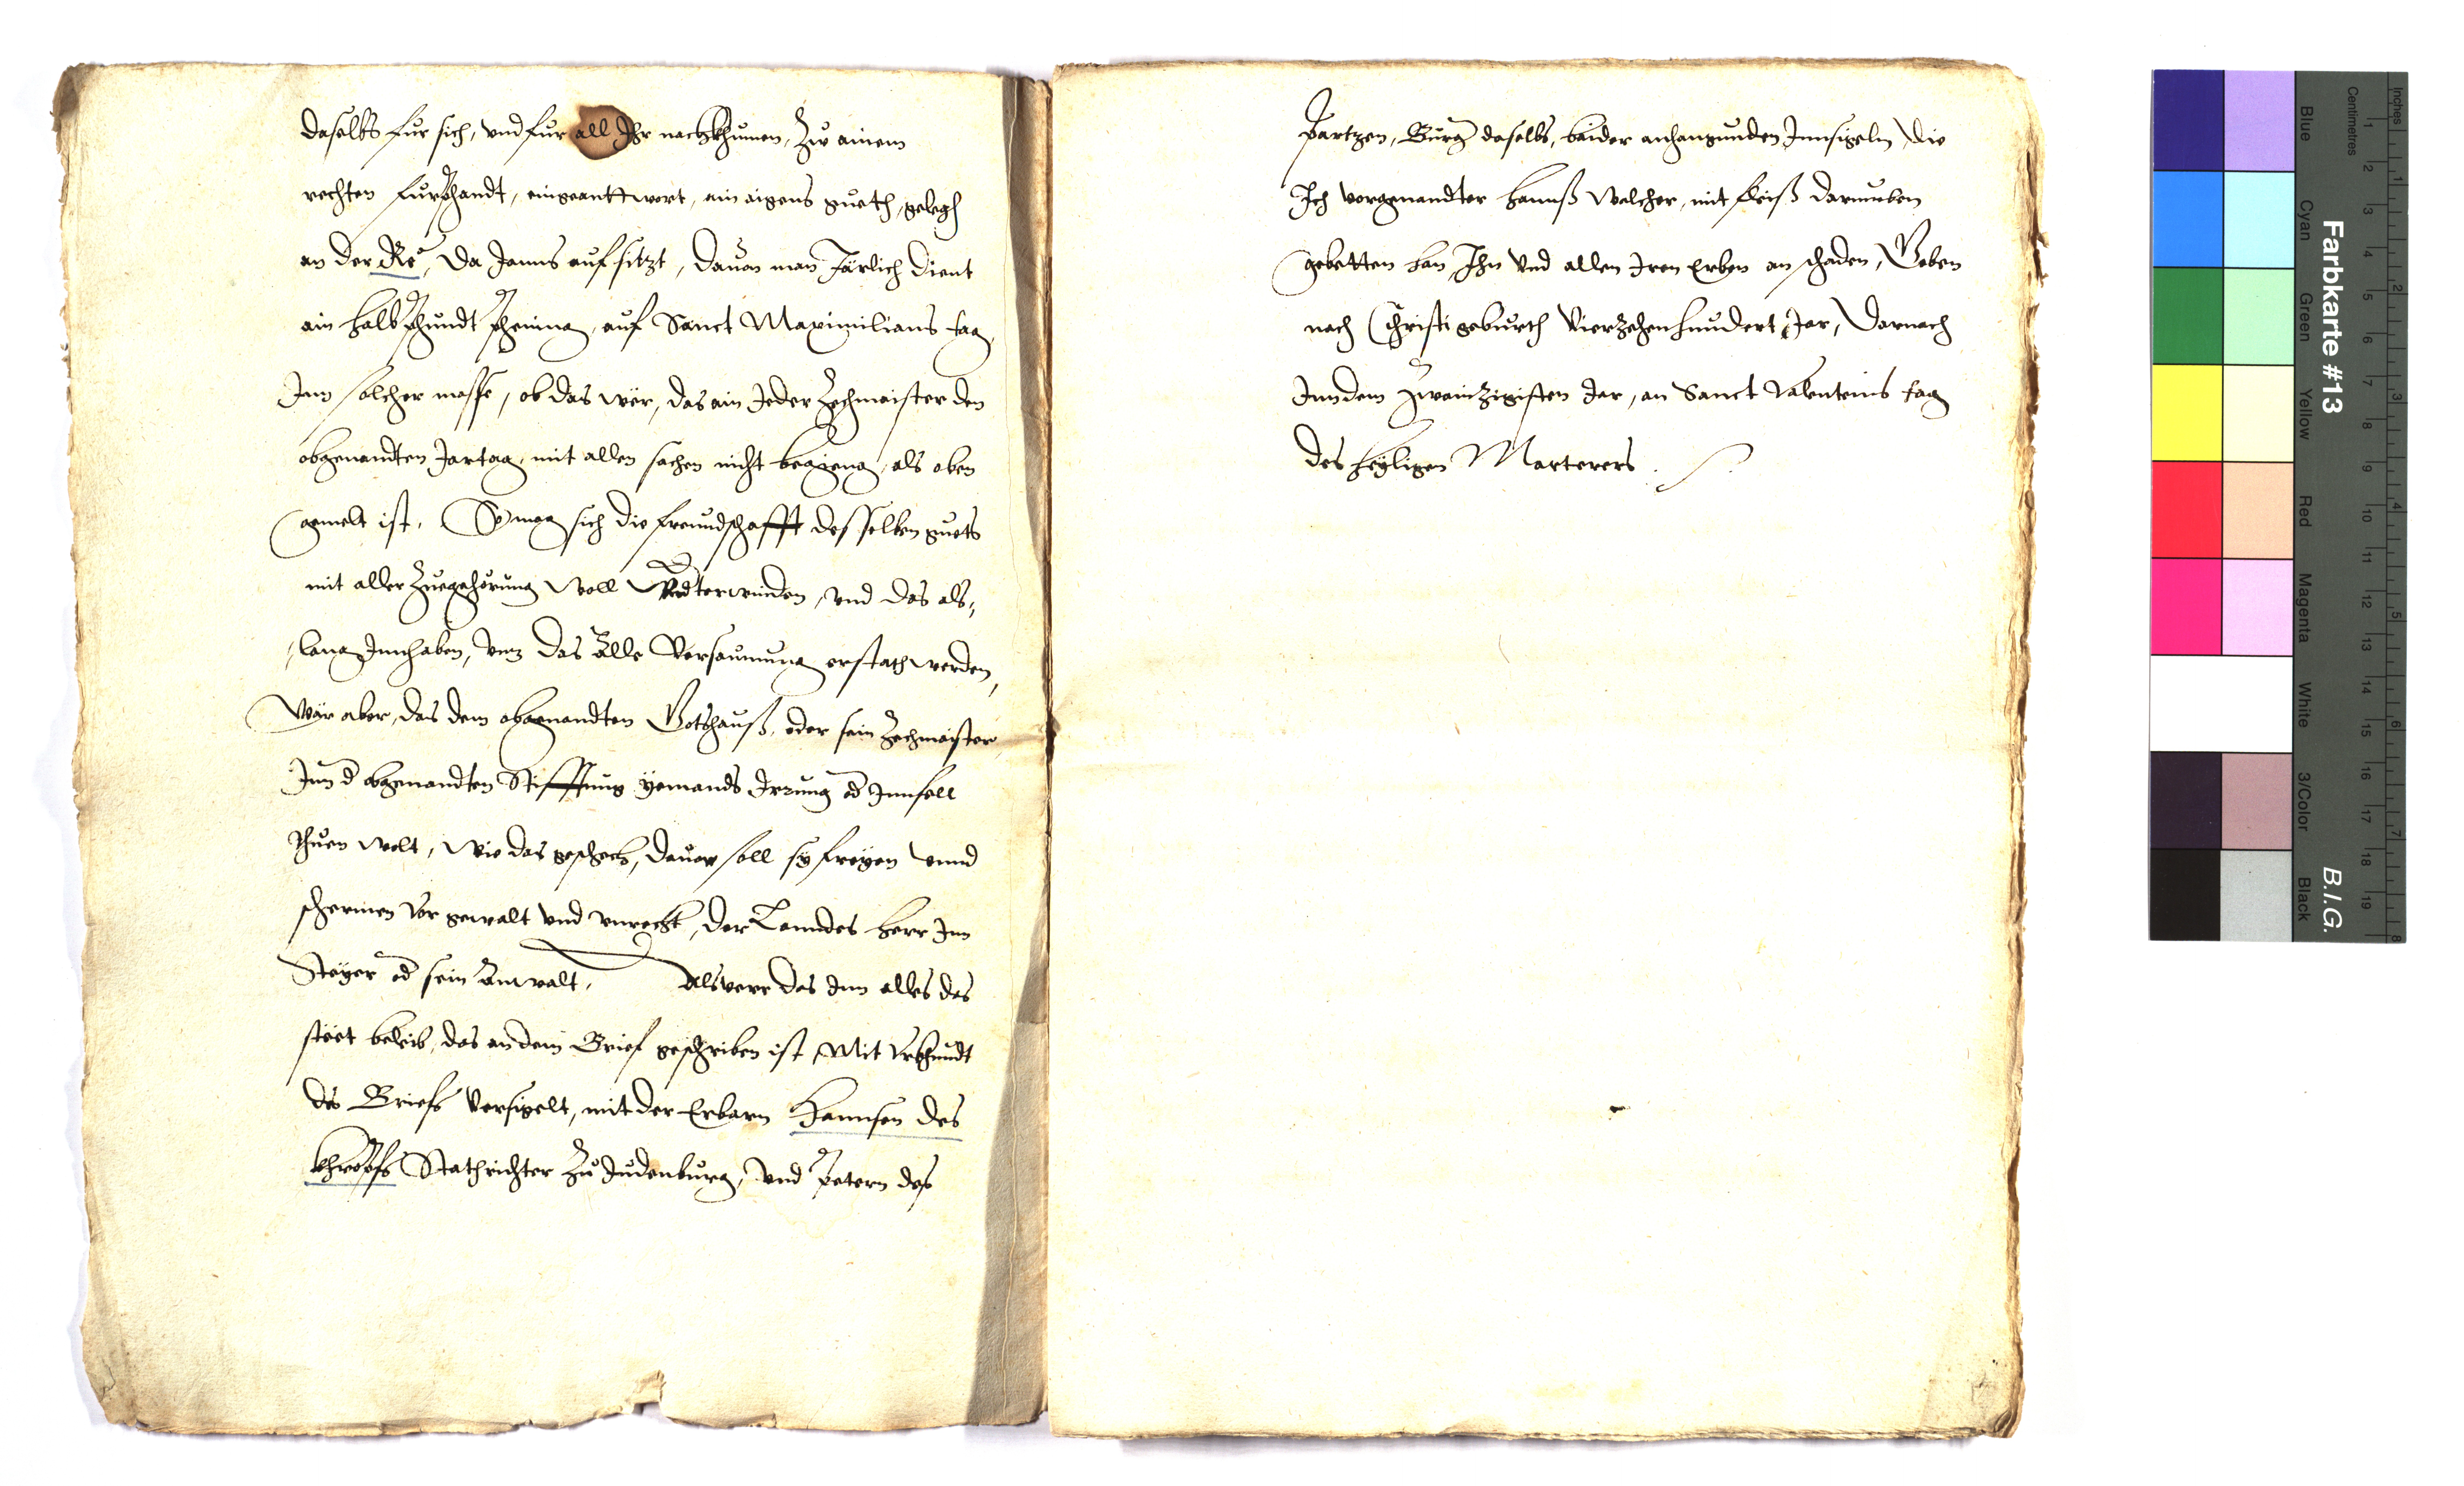 daselbs fur sich, vnd fur all Ihr nachkhumen, Zw ainem
rechten furphandt, eingeanttwort, ain aigens gueth, gelegen
an der Re, Da Janns auf sitzt, dauon man Järlich dient
ain halb phundt phening, auf Sanct Maximilians tag,
Inn solcher masse, ob das wër, das ain Jeder Zechmaister den
obgenandten Jartag, mit allen sachen nicht begieng, als oben
gemelt ist, So mag sich die freundschafft desselben guets
mit aller Zuegehörung woll Vndterwinden, vnd das als,
lang Innhaben, vnz das alle Versaumung erstath werden,
Wär aber, das dem obgenandten Gotshauß, oder sein Zechmaister
Inn d obgenandten Stifftung yemands Irrung od Innfell
thuen wolt, wie das geschech, dauor soll sy freyen vnnd
schermen vor gewalt vnd vnrecht, der Lanndes herr Inn
Steyer od sein Anwalt, Als verr das Inn alles das
stëet beleib, das an dem Brief geschriben ist, Mit Vrkhundt
des Briefs Versigelt, mit der Erbarn Hannsen des
khropfs Stathrichter Zu Judenburg, vnd Petern des
Partzen, Burg daselbs, baider anhangunden Innsigeln, die
Ich vorgenandter Hannß Walcher, mit fleiß darumben
gebetten han, Ihn vnd allen Iren Erben an schaden, Geben
nach Christi geburth Vierzehenhundert Jar, Darnach
Inn dem Zwainzigisten Jar, an Sanct Valenteins tag
des heyligen Marterers.
Farbkarte #13
B.I.G.
Blue
Cyan
Green
Yellow
Red
Magenta
White
3/Color
Black
Centimetres
Inches
1 2 3 4 5 6 7 8 9 10 11 12 13 14 15 16 17 18 19
1 2 3 4 5 6 7 8